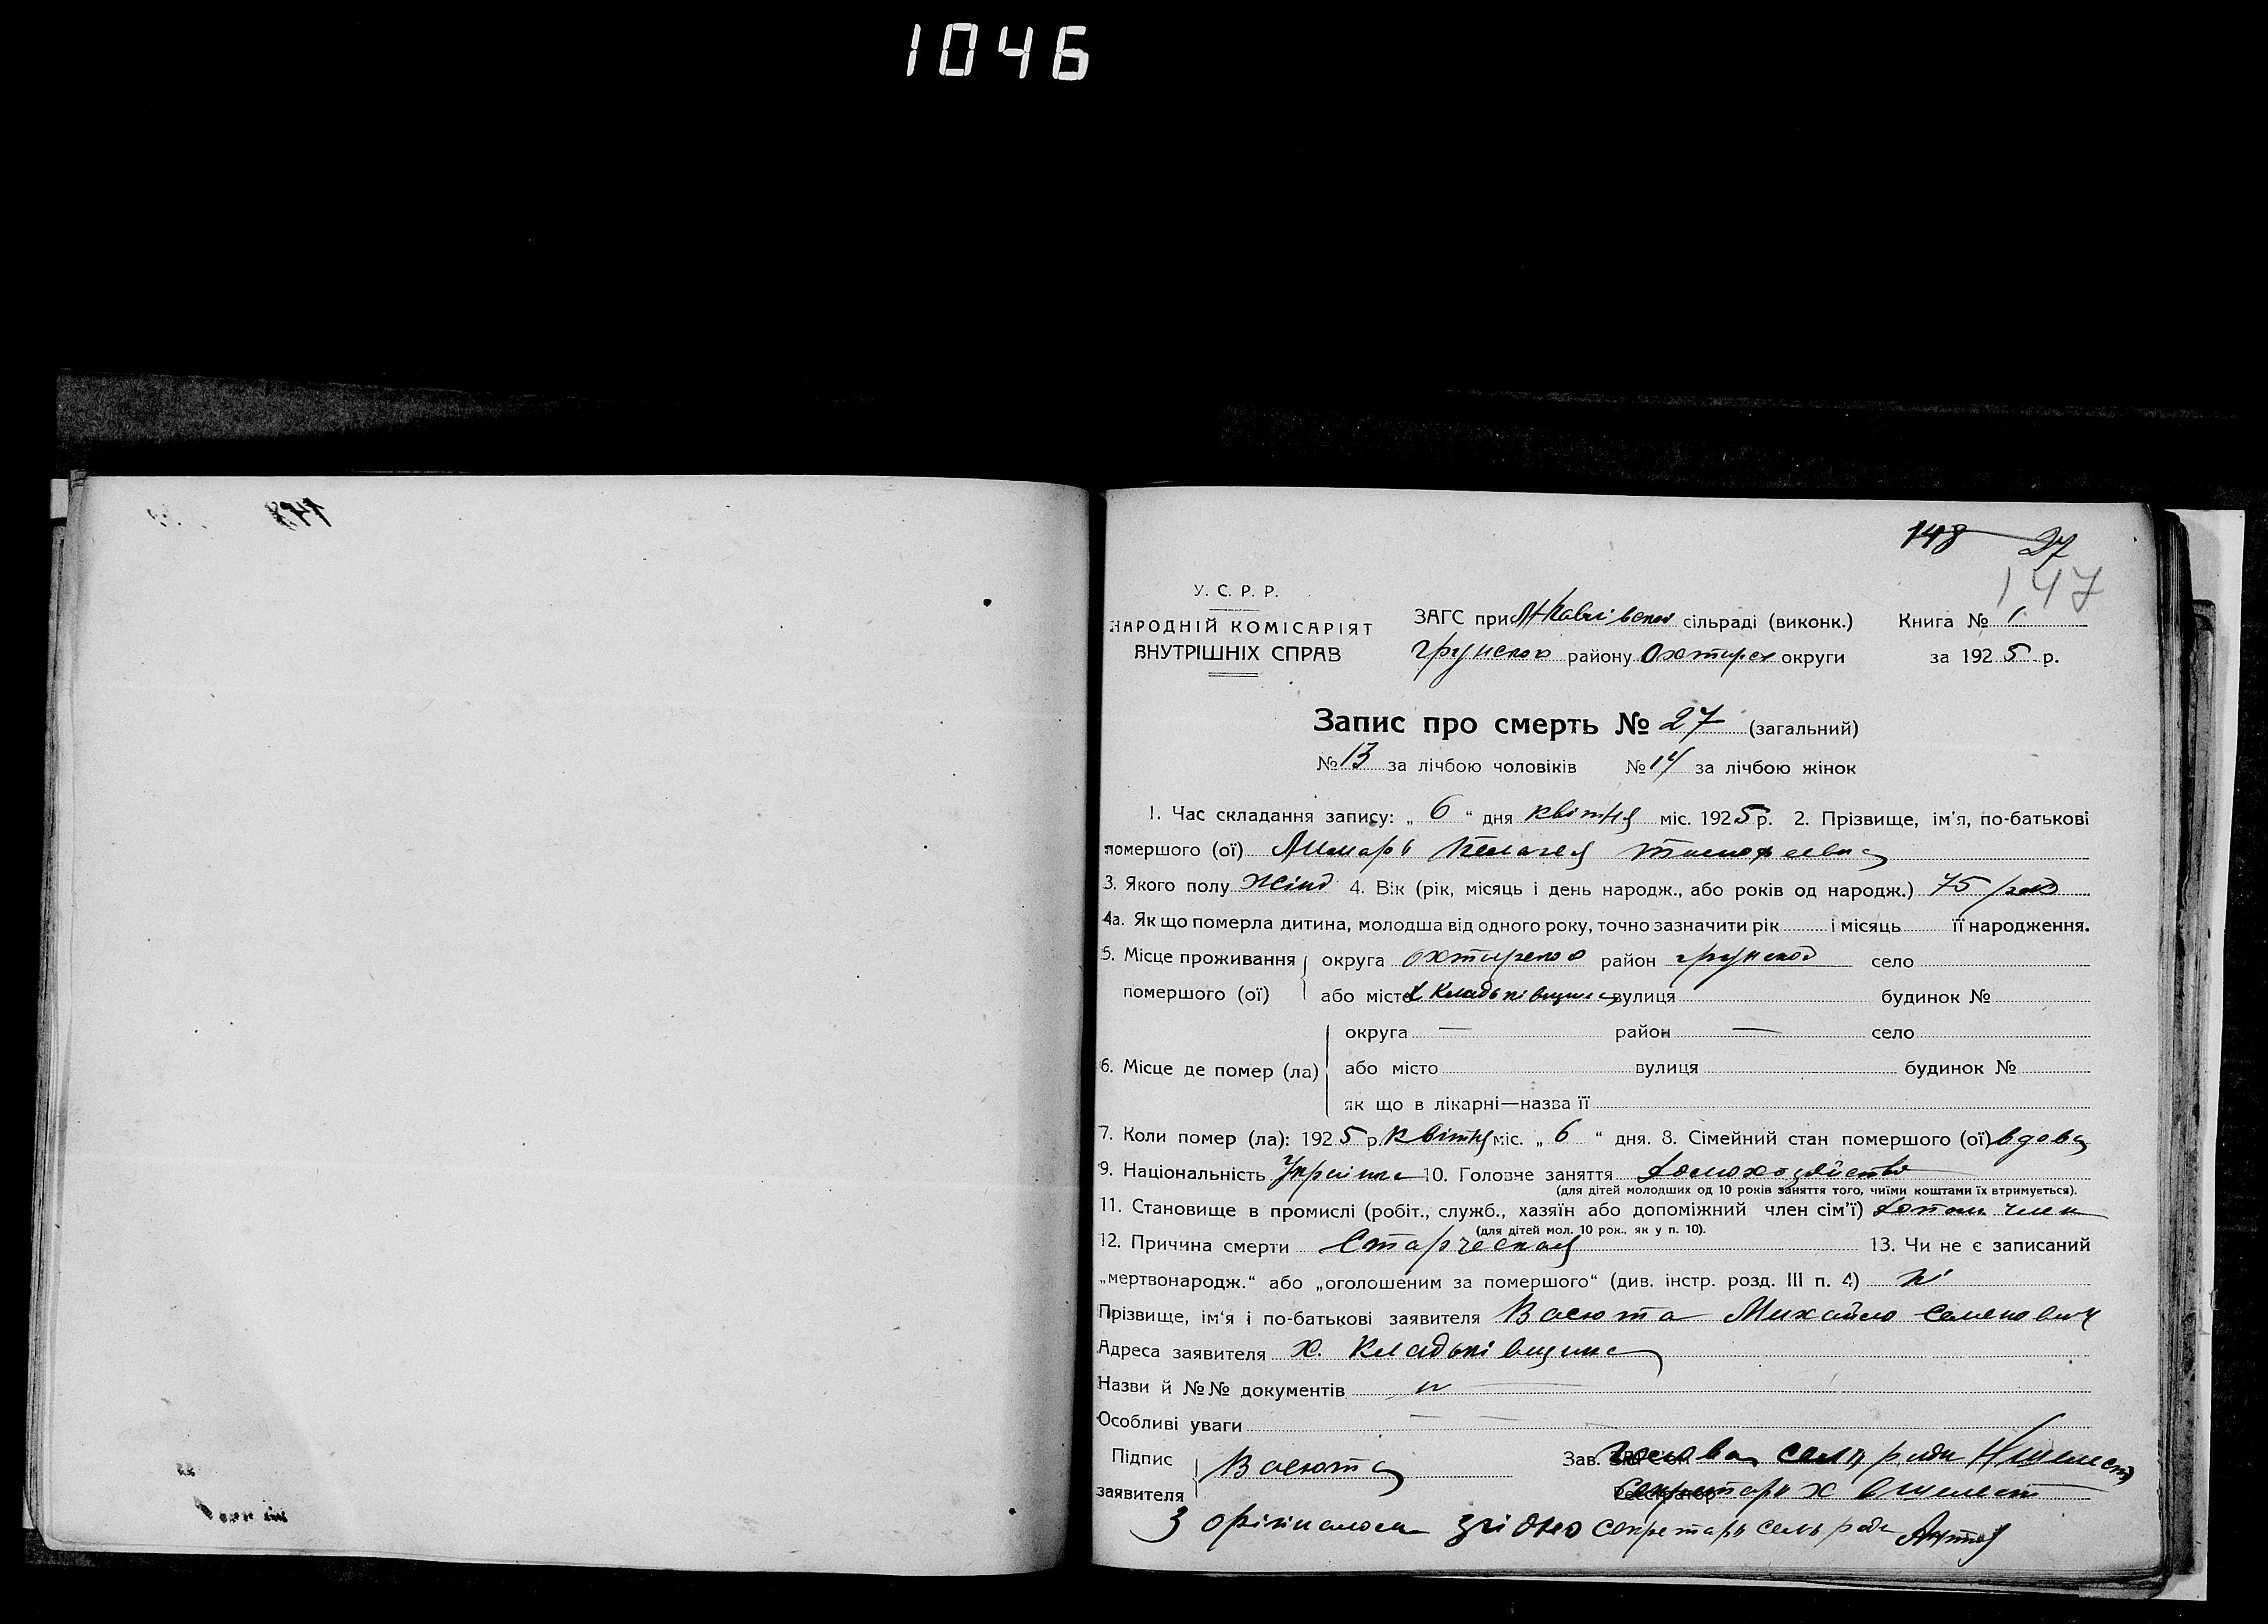 1046
148 27
147
У. С. Р. Р.
НАРОДНІЙ КОМІСАРІЯТ
ВНУТРІШНІХ СПРАВ
ЗАГС при сільраді (виконк.) Книга № 1
грунског району Охтирск округи за 1925 р.
Запис про смерть № 27 (загальний)
№ 13 за лічбою чоловіків № 14 за лічбою жінок
1. Час складання запису: „ 6 “ дня квітня міс. 1925 р. 2. Прізвище, ім'я, по-батькові
помершого (ої) Лимарь Пелагея тимофеевна
3. Якого полу жіно 4. Вік (рік, місяць і день народж., або років од народж.) 75 рок
4а. Як що померла дитина, молодша від одного року, точно зазначити рік і місяць її народження.
5. Місце проживання округа охтирског район грунског село
помершого (ої) або місто х Кладьківщина вулиця будинок №
округа — район — село
6. Місце де помер (ла) або місто вулиця будинок №
як що в лікарні—назва її
7. Коли помер (ла): 1925 р. квітня міс. „ 6 “ дня. 8. Сімейний стан помершого (ої) вдова
9. Національність Українка 10. Головне заняття домохозяйство
(для дітей молодших од 10 років заняття того, чиїми коштами їх втримується).
11. Становище в промислі (робіт., служб., хазяїн або допоміжний член сім'ї) член
(для дітей мол. 10 рок., як у п. 10).
12. Причина смерти Старческая 13. Чи не є записаний
„мертвонародж.“ або „оголошеним за помершого“ (див. інстр. розд. III п. 4) ні
Прізвище, ім'я і по-батькові заявителя Васюта Михайло Семенович
Адреса заявителя х. Кладьківщина
Назви й №№ документів
Особливі уваги — —
Підпис Васюта Зав. голова сель ради Н шелест
заявителя Секретарь х Ошелест
З орігиналом згідно секретарь сель ради